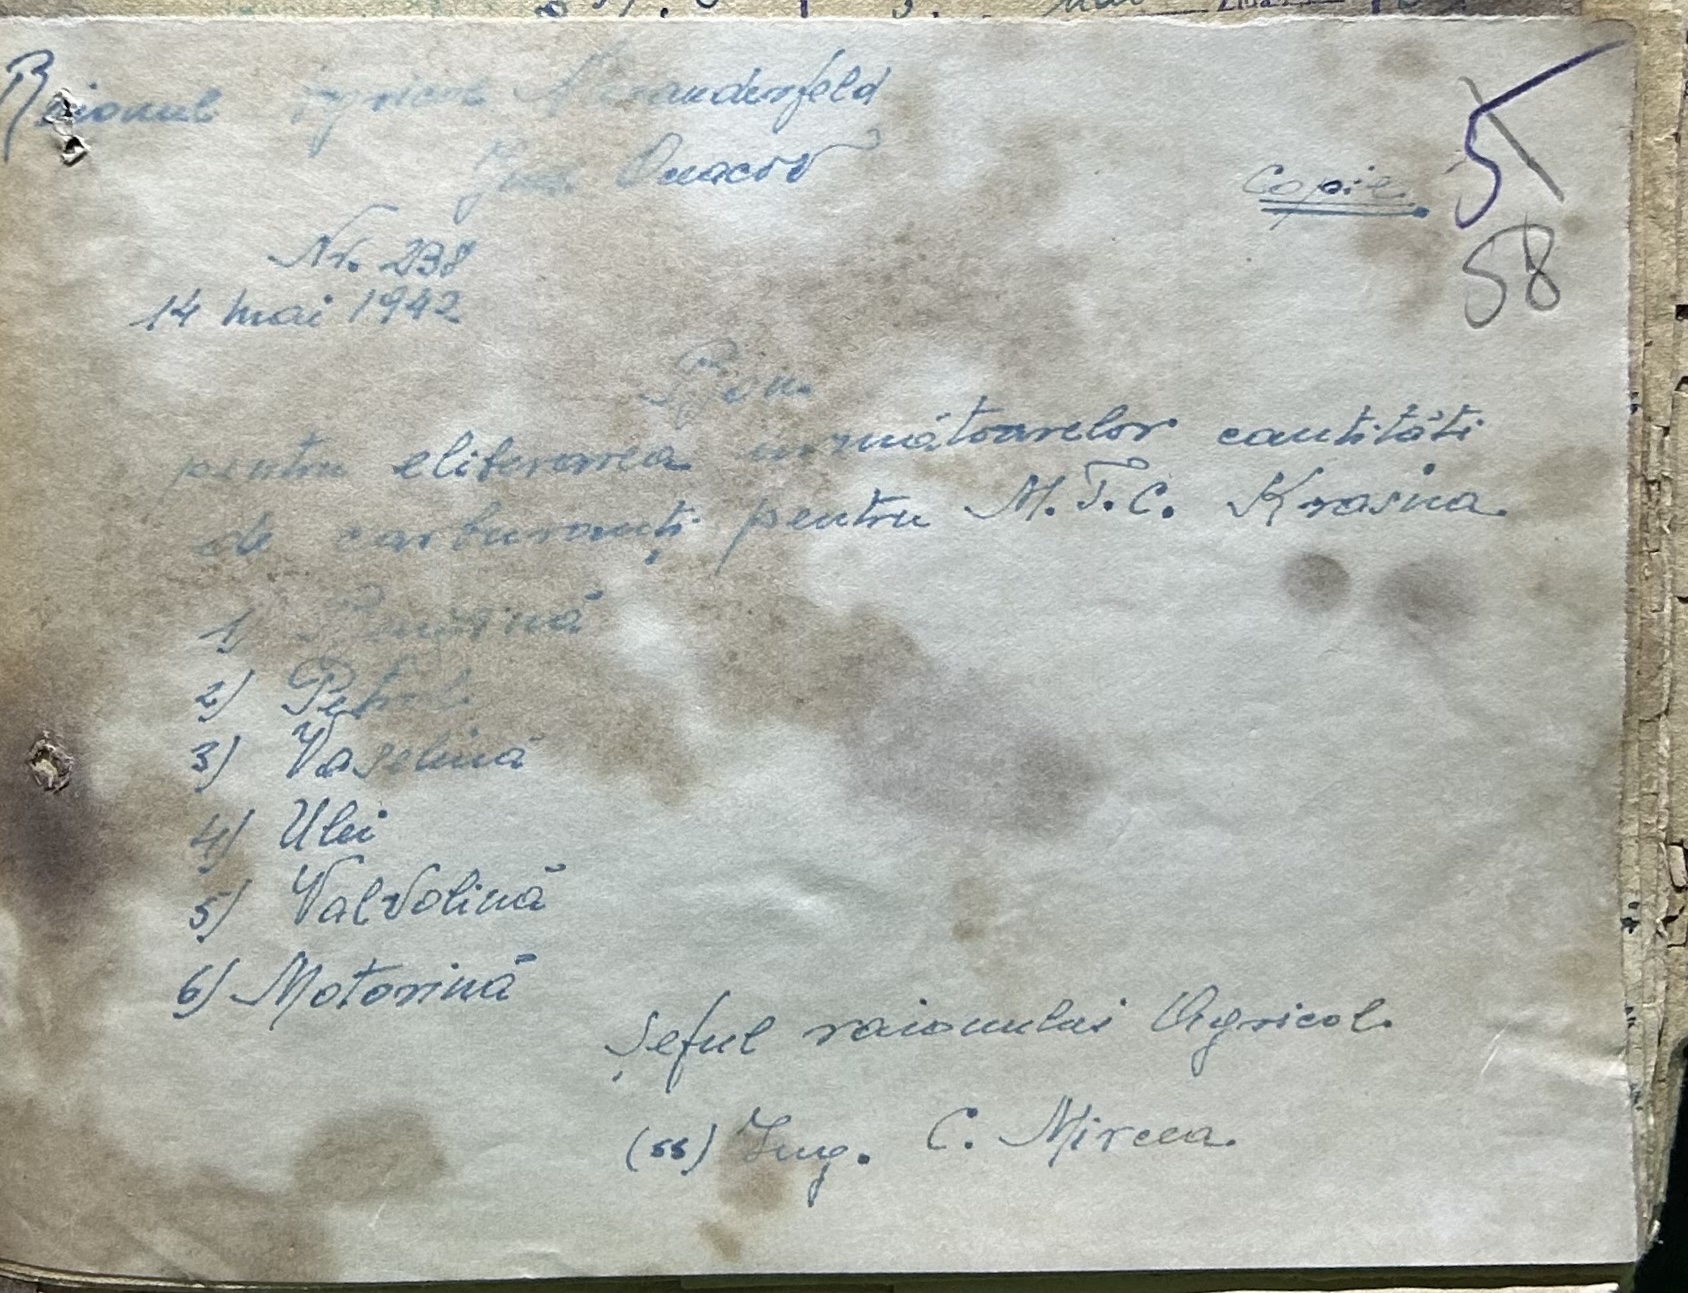 Raionul Agricol Alexanderfeld
Jud. Oceacov
Copie.
5
58
Nr. 238
14 mai 1942
Bon.
pentru eliberarea următoarelor cantităti
de carburanți pentru M.T.C. Krasna.
1) Benzină
2) Petrol.
3) Vaselină
4) Ulei
5) Valvolină
6) Motorină
Șeful raionului Agricol.
(ss) Ing. C. Mircea.